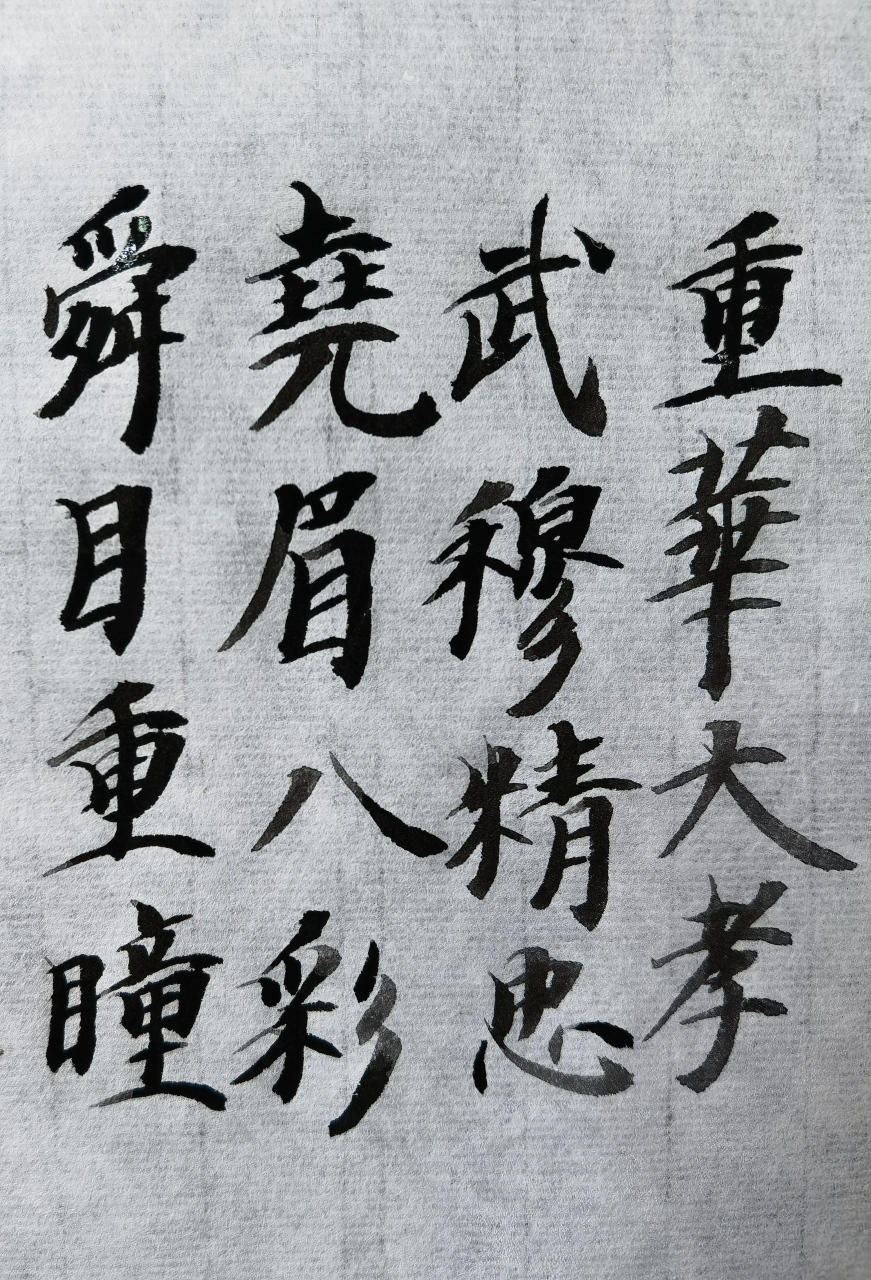 重華大孝
武穆精忠
堯眉八彩
舜目重瞳